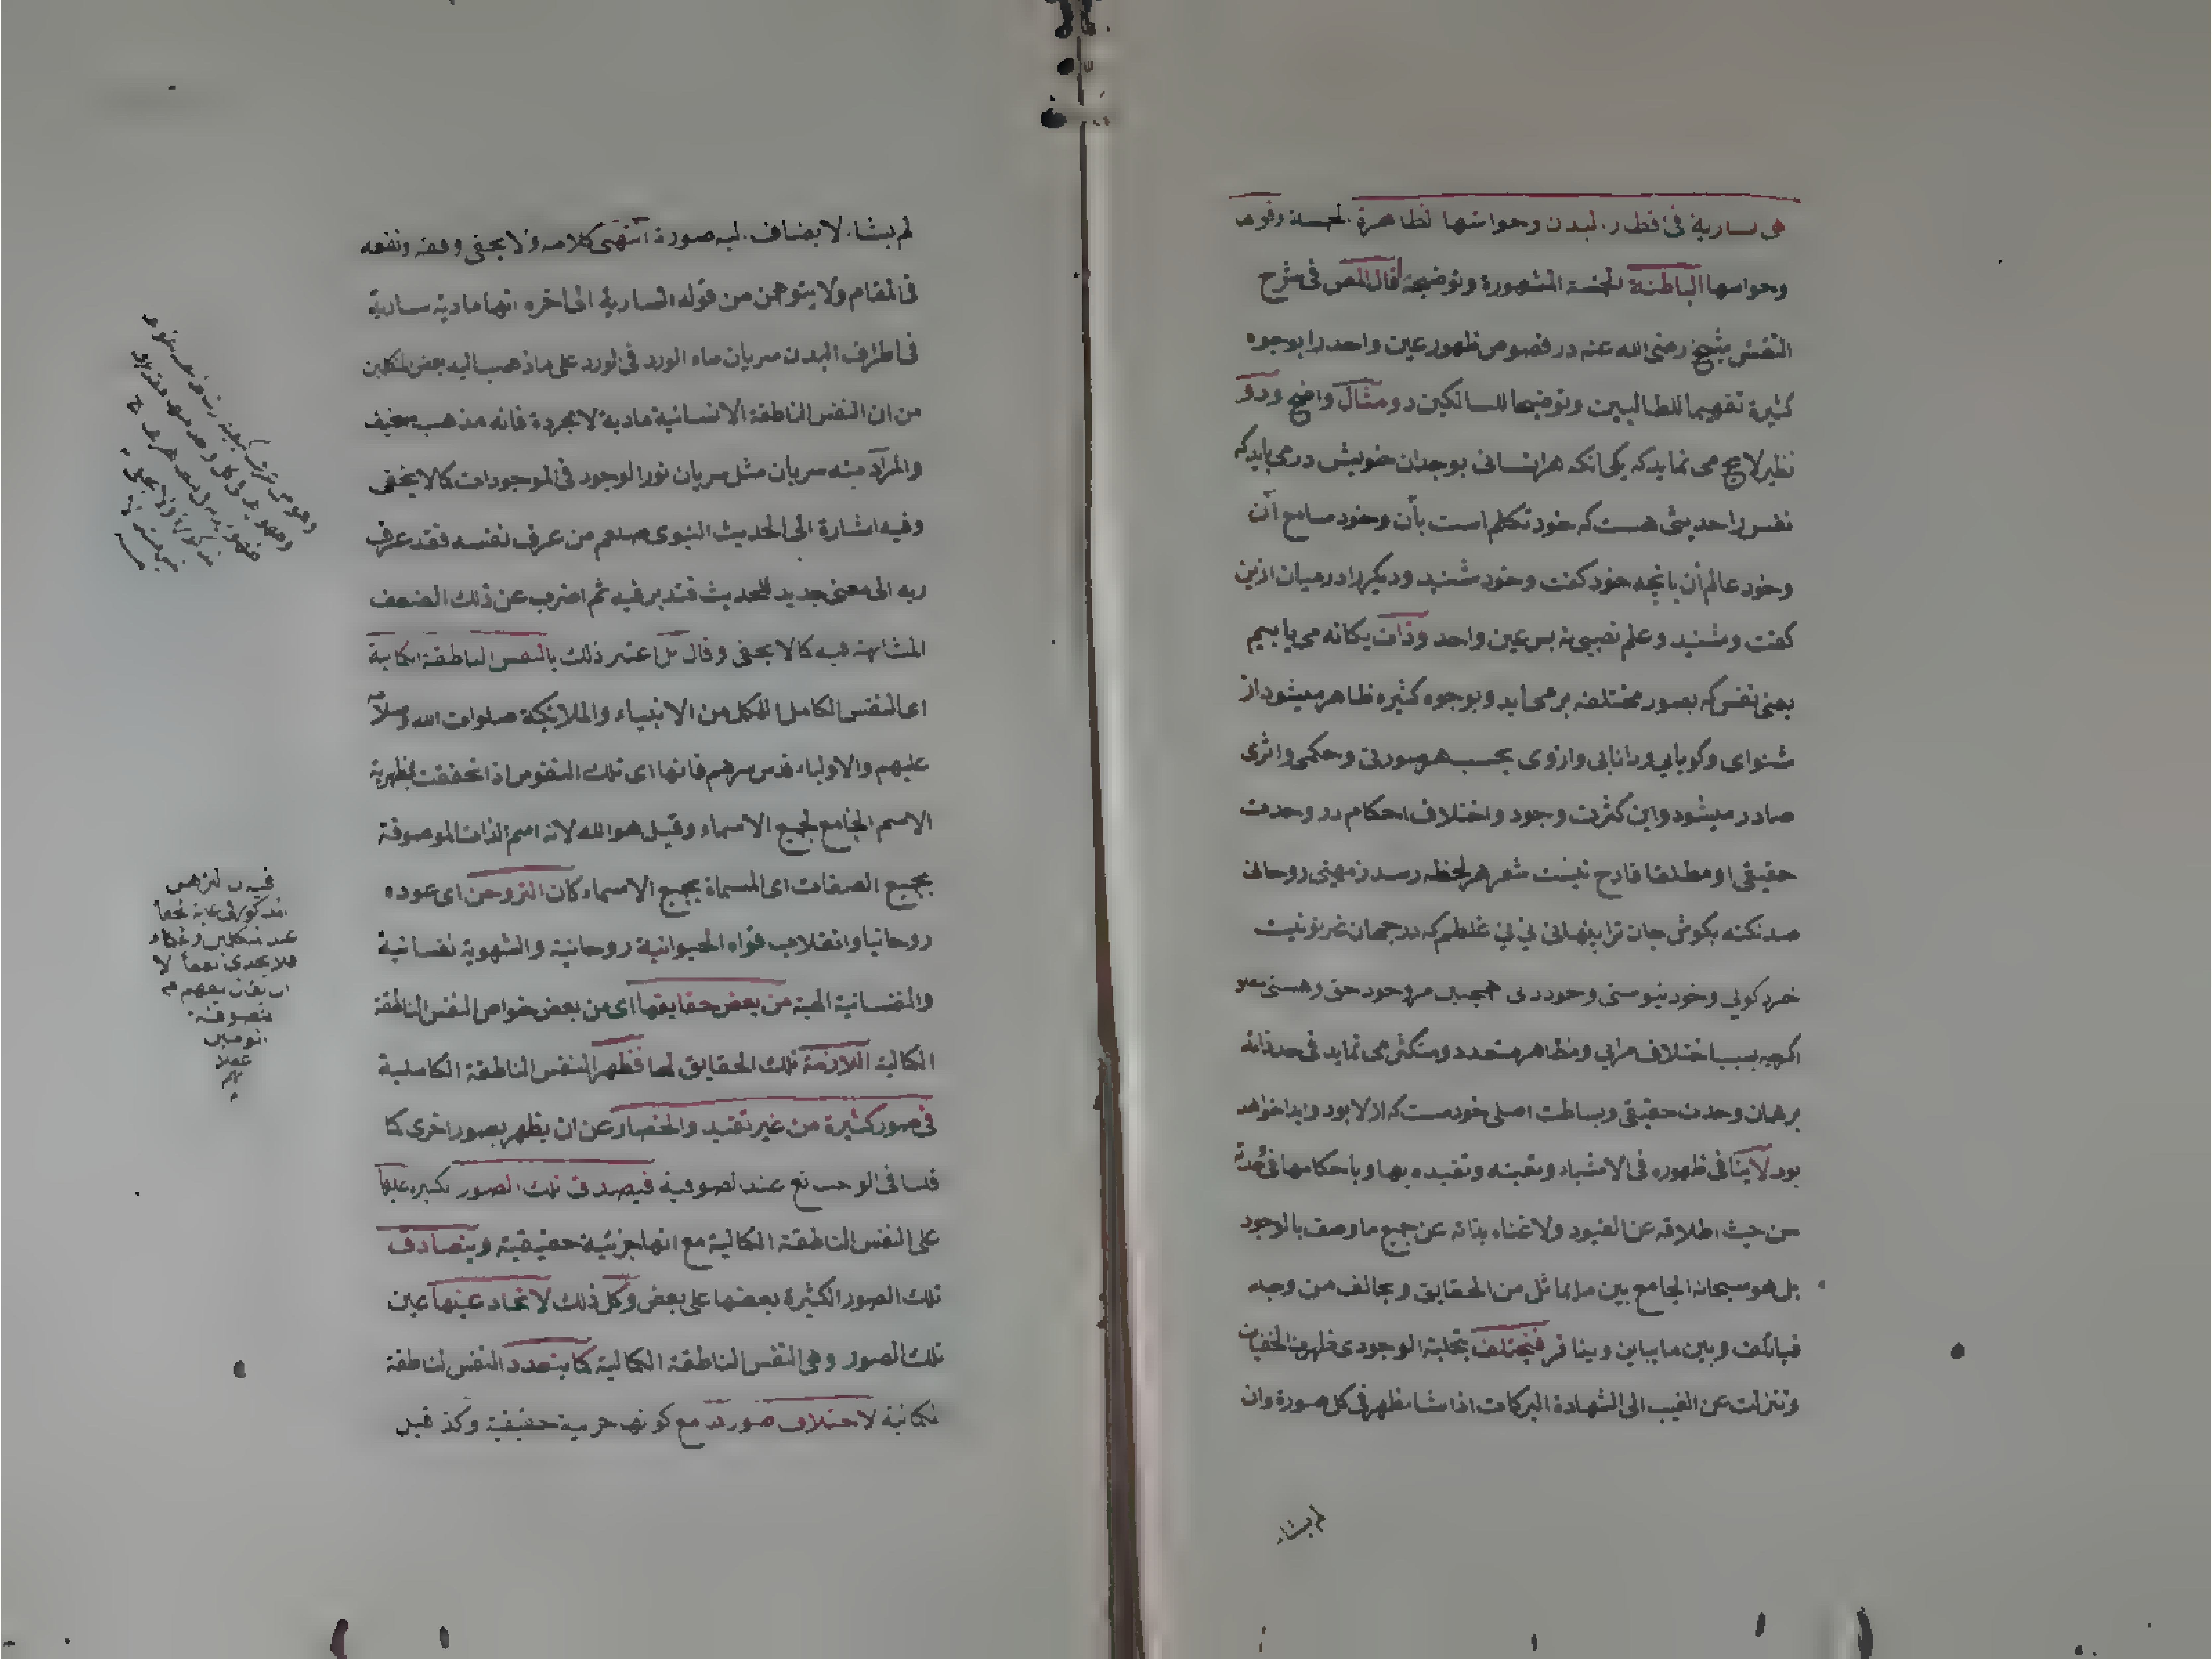 هى سارية فى اقطار البدن وحواسها الظاهرة الخمسة وقوى
وحواسها الباطنة الخمسة المشهورة وتوضيحه قال المص فى شرح
النفس شيخ رضى الله عنه در فصوص ظهور عين واحد را بوجوه
كثيرة تفهيما للطالبين وتوضيحا للسالكين دو مثال واضح ودو
نظير لايح مى نمايد كه يكى انكه هر انسانى بوجدان خويش در مى يابد كه
نفس را حديثى هست كه خود تكلم است بآن وخود سامع آن
وخود عالم آن بانچه خود كفت وخود شنيد وديكر را در ميان ازين
كفت وشنيد وعلم نصيبى نه بس عين واحد وذات يكانه مى يابيم
يعنى نفس كه بصور مختلفه بر مى آيد وبوجوه كثيره ظاهر ميشود از
شنواى وكويايى ودانايى وازوى بحسب هر صورتى وحكمى واثرى
صادر ميشود واين كثرت وجود واختلاف احكام در وحدت
حقيقى او مطلقا قادح نيست شعر هر لحظه رسد زمهينى روحانى
صد نكته بكوش جان ترا پنهانى نى نى غلطم كه در جهان غير تو نيست
خود كويى وخود نيوشى وخود دانى همچنين وجود حق وهستى مطلق
اكرچه بسبب اختلاف مرايى ومظاهر متعدد ومتكثر مى نمايد فى حد ذاته
برهمان وحدت حقيقى وبساطت اصلى خودست كه ازلا بود وابدا خواهد
بود لاينافى ظهوره فى الاشياء وتعينه وتقيده بها وباحكامها فى حدته
من حيث اطلاقه عن القيود ولا غناه بذاته عن جميع ما وصف بالوجود
بل هو سبحانه الجامع بين ما يماثل من الحقايق ويخالف من وجه
فيأتلف وبين ما يباين وينافر فيختلف بتجلية الوجودى ظهرت الخفيات
وتنزلت عن الغيب الى الشهادة البركات اذا شاء يظهر فى كل صورة وان
لم يشاء
لم يشاء لا يضاف اليه صورة انتهى كلامه ولا يخفى وقعه ونفعه
فى المقام ولا يتوهمن من قوله السارية الى اخره انها مادية سارية
فى اطراف البدن سريان ماء الورد فى الورد على ما ذهب اليه بعض المتكلمين
من ان النفس الناطقة الانسانية مادية لا مجردة فانه مذهب سخيف
والمراد منه سريان مثل سريان نور الوجود فى الموجودات كما لا يخفى
وفيه اشارة الى الحديث النبوى صلعم من عرف نفسه فقد عرف
ربه الى معنى جديد للحديث فتدبر فيه ثم اضرب عن ذلك الضعف
المشابهة فيه كما لا يخفى وقال بل اعتبر ذلك بالنفس الناطقة الكمالية
اى النفس الكامل المكمل من الانبياء والملائكة صلوات الله وسلامه
عليهم والاولياء قدس سرهم فانها اى تلك النفوس اذا تحققت بمظهرية
الاسم الجامع لجميع الاسماء وقيل هو الله لانه اسم الذات الموصوفة
بجميع الصفات اى المسماة بجميع الاسماء كان التروحن اى عوده
روحانيا وانقلاب قواه الحيوانية روحانية والشهوية نفسانية
والنفسانية الهية من بعض حقايقها اى من بعض خواص النفس الناطقة
الكمالية اللازمة تلك الحقايق لها فظهر النفس الناطقة الكاملية
فى صور كثيرة من غير تقيد وانحصار عن ان يظهر بصور اخرى كما
قلنا فى الواجب تع عند الصوفية فيصدق تلك الصور الكثيرة عليها
على النفس الناطقة الكمالية مع انها جزئية حقيقية ويتصادق
تلك الصور الكثيرة بعضها على بعض وكل ذلك لاتحاد عينها عين
تلك الصور وهى النفس الناطقة الكمالية كما يتعدد النفس الناطقة
الكمالية لاختلاف صورها مع كونها جزئية حقيقية وكذا قيل